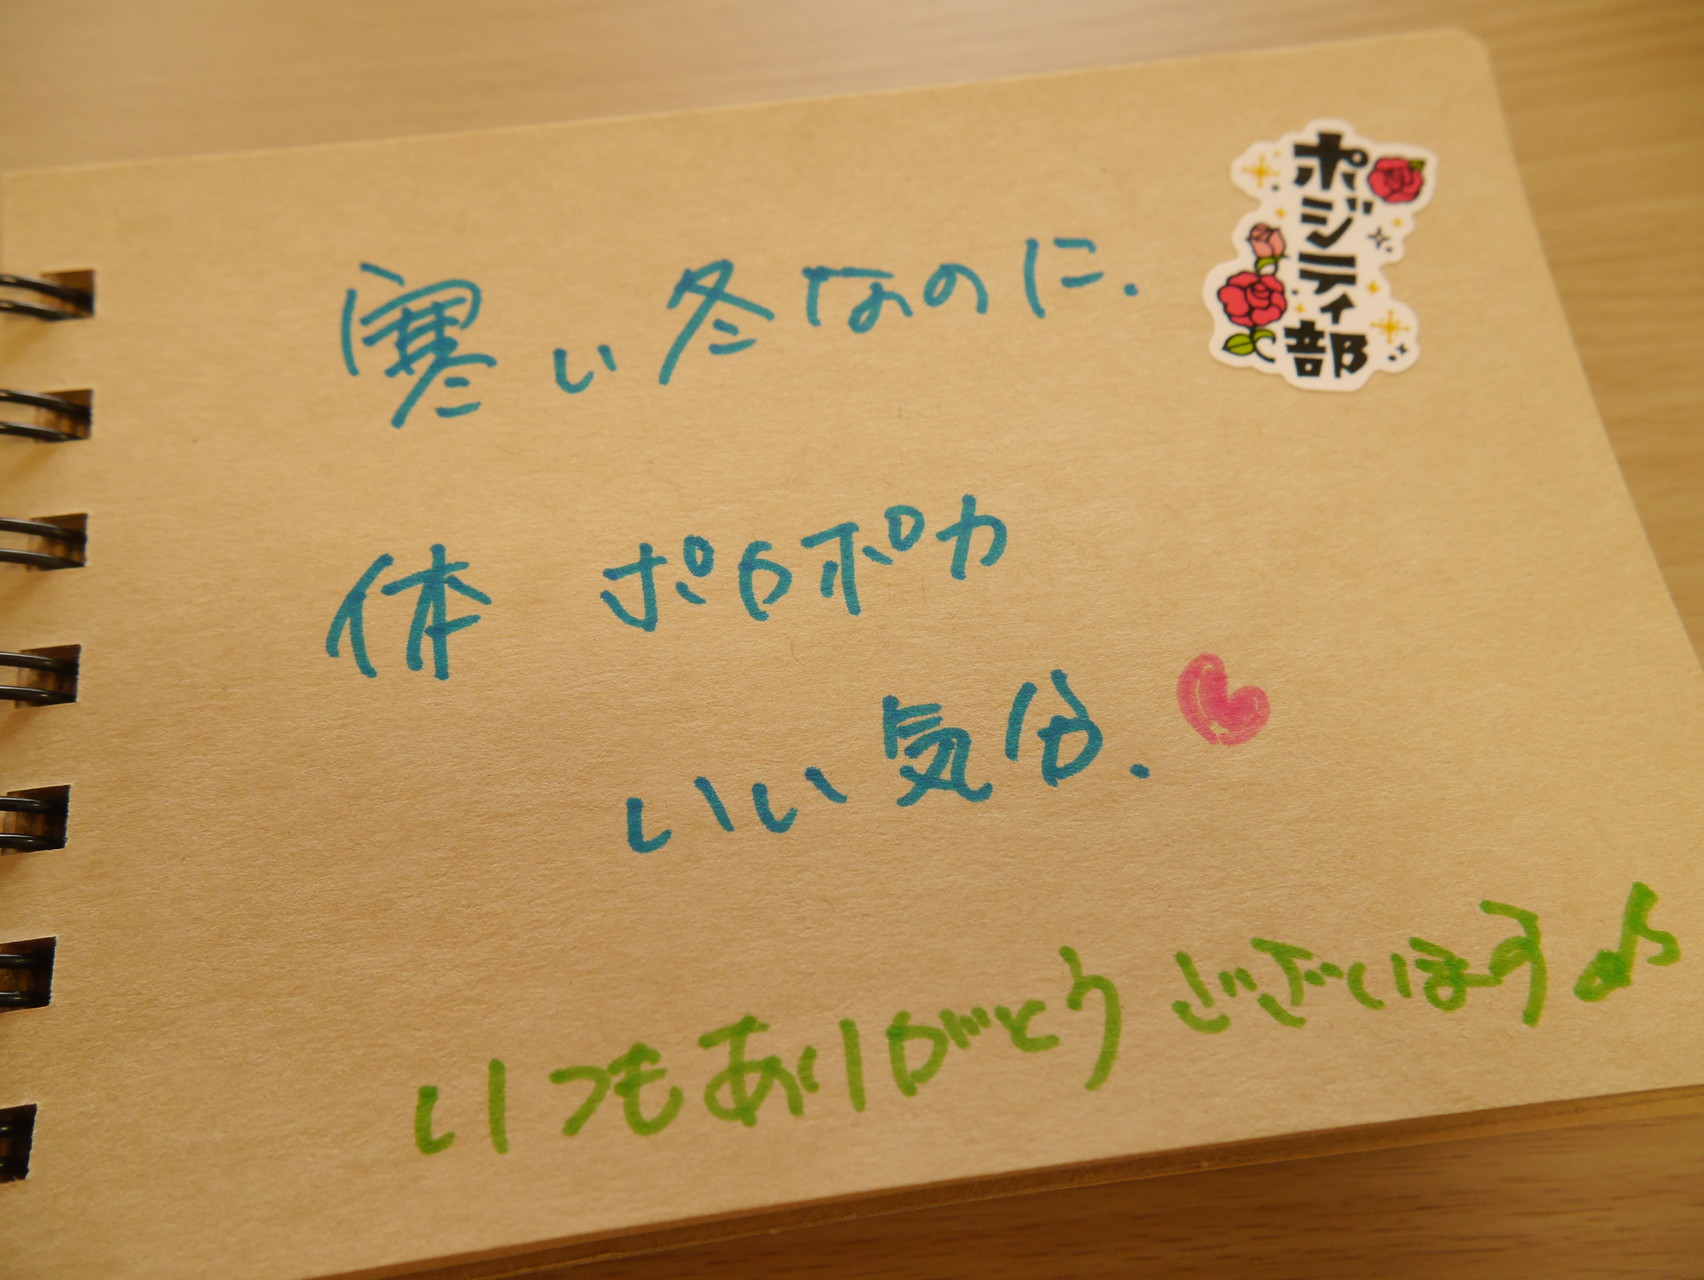 ポジティ部
寒い冬なのに.
体 ポカポカ
いい気分.
いつもありがとうございます♪